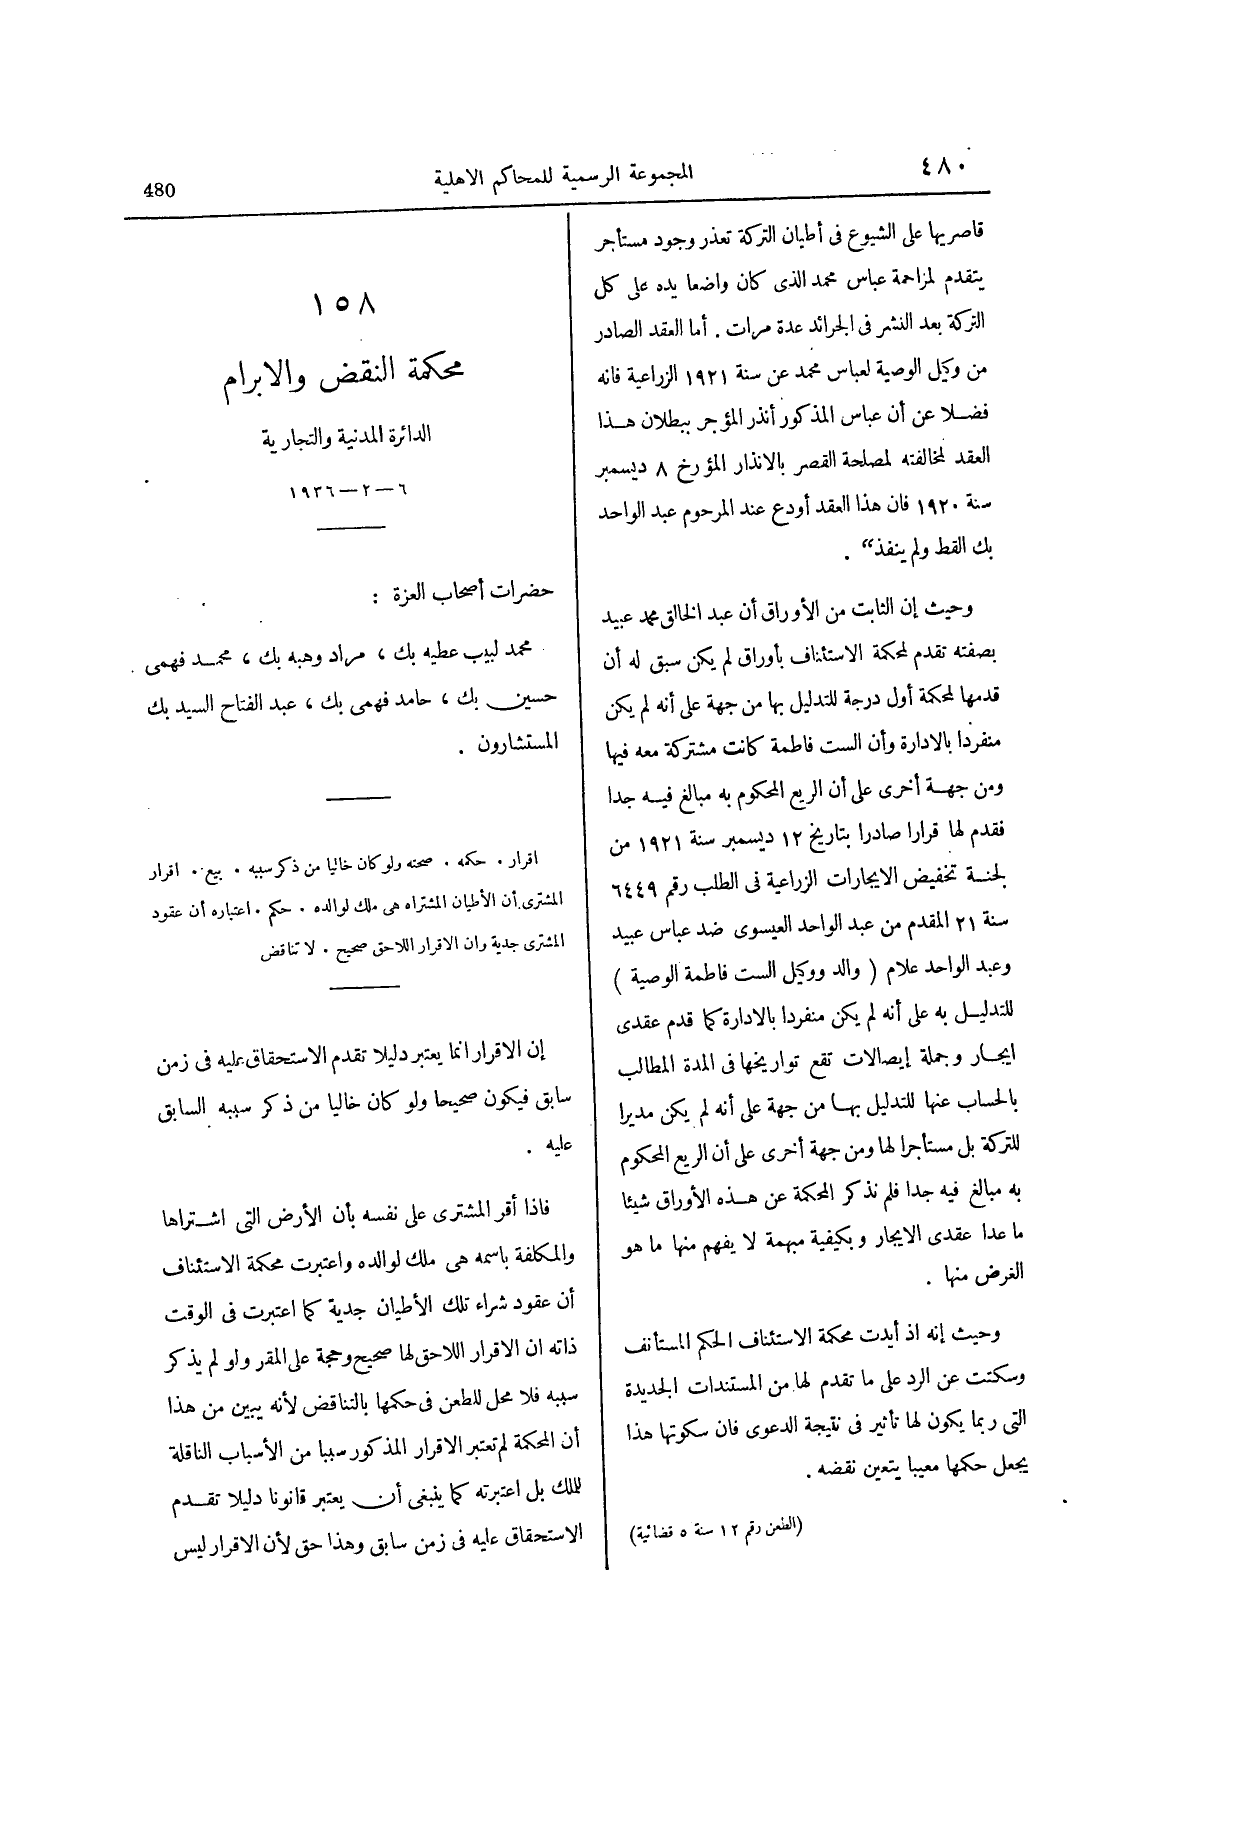 ٤٨٠
المجموعة الرسمية للمحاكم الاهلية
480
قاصريها على الشيوع فى أطيان التركة تعذر وجود مستأجر
يتقدم لمزاحمة عباس محمد الذى كان واضعا يده على كل
التركة بعد النشر فى الجرائد عدة مرات . أما العقد الصادر
من وكيل الوصية لعباس محمد عن سنة ١٩٢١ الزراعية فانه
فضلا عن أن عباس المذكور أنذر المؤجر ببطلان هذا
العقد لمخالفته لمصلحة القصر بالانذار المؤرخ ٨ ديسمبر
سنة ١٩٢٠ فان هذا العقد أودع عند المرحوم عبد الواحد
بك القط ولم ينفذ“ .
وحيث إن الثابت من الأوراق أن عبد الخالق محمد عبيد
بصفته تقدم لمحكمة الاستئناف بأوراق لم يكن سبق له أن
قدمها لمحكمة أول درجة للتدليل بها من جهة على أنه لم يكن
منفردا بالادارة وأن الست فاطمة كانت مشتركة معه فيها
ومن جهة أخرى على أن الريع المحكوم به مبالغ فيه جدا
فقدم لها قرارا صادرا بتاريخ ١٢ ديسمبر سنة ١٩٢١ من
لجنة تخفيض الايجارات الزراعية فى الطلب رقم ٦٤٤٩
سنة ٢١ المقدم من عبد الواحد العيسوى ضد عباس عبيد
وعبد الواحد علام ( والد ووكيل الست فاطمة الوصية )
للتدليل به على أنه لم يكن منفردا بالادارة كما قدم عقدى
ايجار وجملة إيصالات تقع تواريخها فى المدة المطالب
بالحساب عنها للتدليل بها من جهة على أنه لم يكن مديرا
للتركة بل مستأجرا لها ومن جهة أخرى على أن الريع المحكوم
به مبالغ فيه جدا فلم نذكر المحكمة عن هذه الأوراق شيئا
ما عدا عقدى الايجار وبكيفية مبهمة لا يفهم منها ما هو
الغرض منها .
وحيث إنه اذ أيدت محكمة الاستئناف الحكم المستأنف
وسكتت عن الرد على ما تقدم لها من المستندات الجديدة
التى ربما يكون لها تأثير فى نتيجة الدعوى فان سكوتها هذا
يجعل حكمها معيبا يتعين نقضه .
(الطعن رقم ١٢ سنة ٥ قضائية)
١٥٨
محكمة النقض والابرام
الدائرة المدنية والتجارية
٦ — ٢ — ١٩٣٦
حضرات أصحاب العزة :
محمد لبيب عطيه بك ، مراد وهبه بك ، محمد فهمى
حسين بك ، حامد فهمى بك ، عبد الفتاح السيد بك
المستشارون .
اقرار . حكمه . صحته ولو كان خاليا من ذكر سببه . بيع . اقرار
المشترى أن الأطيان المشتراه هى ملك لوالده . حكم . اعتباره أن عقود
المشترى جدية وان الاقرار اللاحق صحيح . لا تناقض
إن الاقرار انما يعتبر دليلا تقدم الاستحقاق عليه فى زمن
سابق فيكون صحيحا ولو كان خاليا من ذكر سببه السابق
عليه .
فاذا أقر المشترى على نفسه بأن الأرض التى اشتراها
والمكلفة باسمه هى ملك لوالده واعتبرت محكمة الاستئناف
أن عقود شراء تلك الأطيان جدية كما اعتبرت فى الوقت
ذاته ان الاقرار اللاحق لها صحيح وحجة على المقر ولو لم يذكر
سببه فلا محل للطعن فى حكمها بالتناقض لأنه يبين من هذا
أن المحكمة لم تعتبر الاقرار المذكور سببا من الأسباب الناقلة
للملك بل اعتبرته كما ينبغى أن يعتبر قانونا دليلا تقدم
الاستحقاق عليه فى زمن سابق وهذا حق لأن الاقرار ليس